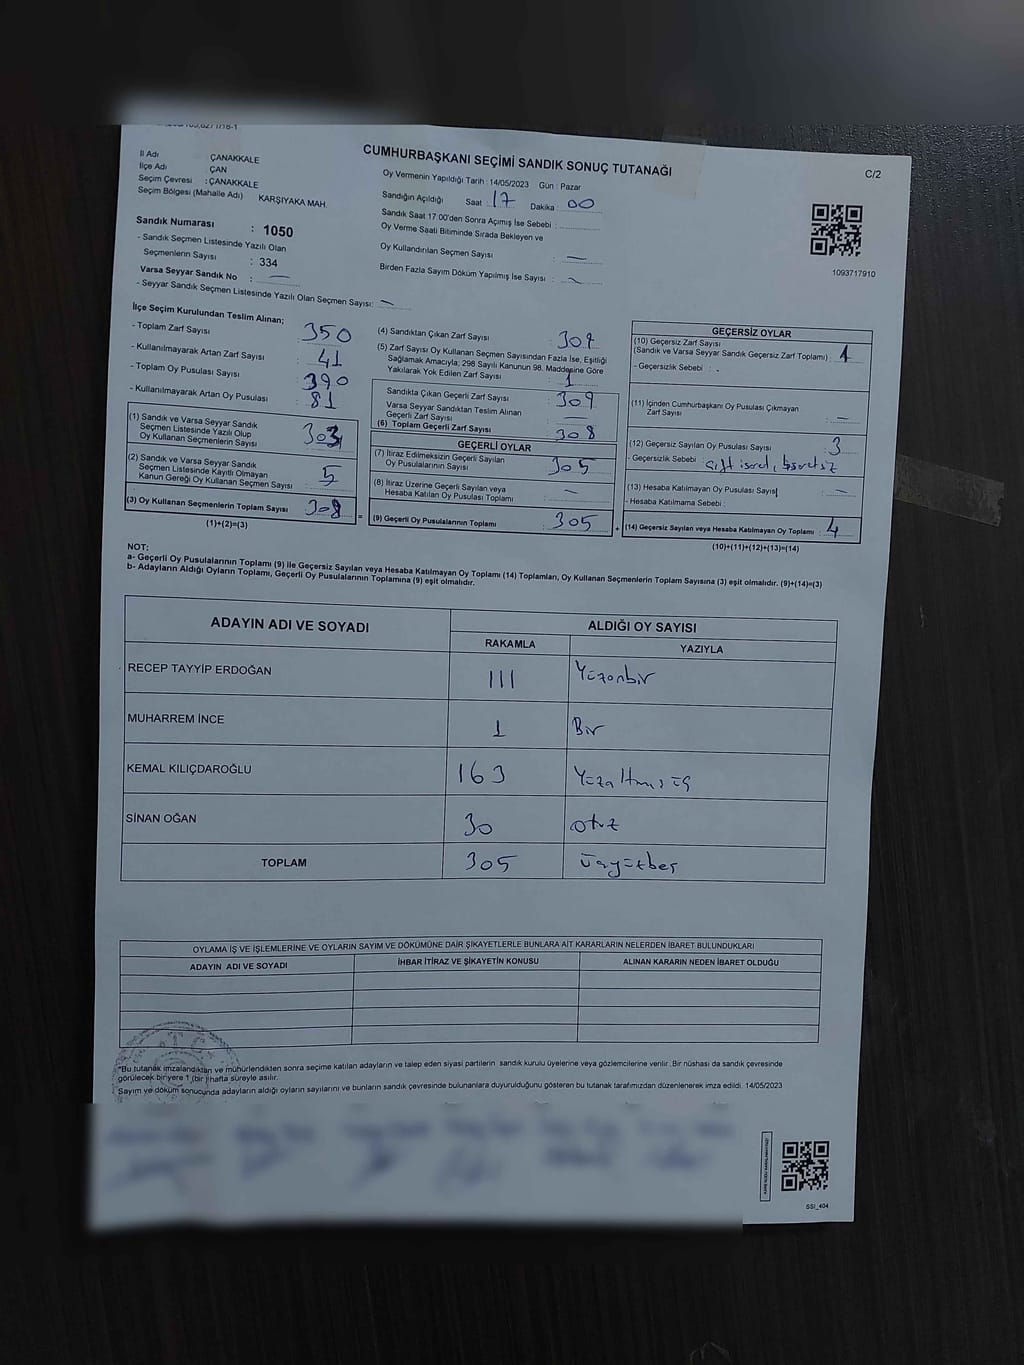 CUMHURBAŞKANI SEÇİMİ SANDIK SONUÇ TUTANAĞI
C/2
İl Adı ÇANAKKALE
İlçe Adı ÇAN
Seçim Çevresi : ÇANAKKALE
Seçim Bölgesi (Mahalle Adı) KARŞIYAKA MAH.
Sandık Numarası : 1050
- Sandık Seçmen Listesinde Yazılı Olan
Seçmenlerin Sayısı : 334
Varsa Seyyar Sandık No : —
- Seyyar Sandık Seçmen Listesinde Yazılı Olan Seçmen Sayısı: —
Oy Vermenin Yapıldığı Tarih : 14/05/2023 Gün : Pazar
Sandığın Açıldığı Saat : 17 Dakika : 00
Sandık Saat 17 00'den Sonra Açımış İse Sebebi :
Oy Verme Saati Bitiminde Sırada Bekleyen ve
Oy Kullandırılan Seçmen Sayısı : —
Birden Fazla Sayım Döküm Yapılmış İse Sayısı : —
1093717910
İlçe Seçim Kurulundan Teslim Alınan;
- Toplam Zarf Sayısı 350
- Kullanılmayarak Artan Zarf Sayısı 41
- Toplam Oy Pusulası Sayısı 390
- Kullanılmayarak Artan Oy Pusulası 81
(1) Sandık ve Varsa Seyyar Sandık
Seçmen Listesinde Yazılı Olup
Oy Kullanan Seçmenlerin Sayısı 303
(2) Sandık ve Varsa Seyyar Sandık
Seçmen Listesinde Kayıtlı Olmayan
Kanun Gereği Oy Kullanan Seçmen Sayısı 5
(3) Oy Kullanan Seçmenlerin Toplam Sayısı 308
(1)+(2)=(3)
(4) Sandıktan Çıkan Zarf Sayısı : 309
(5) Zarf Sayısı Oy Kullanan Seçmen Sayısından Fazla İse, Eşitliği
Sağlamak Amacıyla; 298 Sayılı Kanunun 98. Maddesine Göre
Yakılarak Yok Edilen Zarf Sayısı : 1
Sandıkta Çıkan Geçerli Zarf Sayısı : 309
Varsa Seyyar Sandıktan Teslim Alınan
Geçerli Zarf Sayısı : —
(6) Toplam Geçerli Zarf Sayısı 308
GEÇERLİ OYLAR
(7) İtiraz Edilmeksizin Geçerli Sayılan
Oy Pusulalarının Sayısı 305
(8) İtiraz Üzerine Geçerli Sayılan veya
Hesaba Katılan Oy Pusulası Toplamı : —
(9) Geçerli Oy Pusulalarının Toplamı : 305
GEÇERSİZ OYLAR
(10) Geçersiz Zarf Sayısı
(Sandık ve Varsa Seyyar Sandık Geçersiz Zarf Toplamı) : 1
- Geçersizlik Sebebi : -
(11) İçinden Cumhurbaşkanı Oy Pusulası Çıkmayan
Zarf Sayısı : —
(12) Geçersiz Sayılan Oy Pusulası Sayısı : 3
- Geçersizlik Sebebi : çift isret, İşaretsiz
(13) Hesaba Katılmayan Oy Pusulası Sayısı : —
- Hesaba Katılmama Sebebi :
(14) Geçersiz Sayılan veya Hesaba Katılmayan Oy Toplamı : 4
(10)+(11)+(12)+(13)=(14)
NOT:
a- Geçerli Oy Pusulalarının Toplamı (9) ile Geçersiz Sayılan veya Hesaba Katılmayan Oy Toplamı (14) Toplamları, Oy Kullanan Seçmenlerin Toplam Sayısına (3) eşit olmalıdır. (9)+(14)=(3)
b- Adayların Aldığı Oyların Toplamı, Geçerli Oy Pusulalarının Toplamına (9) eşit olmalıdır.
ADAYIN ADI VE SOYADI ALDIĞI OY SAYISI
RAKAMLA YAZIYLA
RECEP TAYYİP ERDOĞAN 111 Yüzonbir
MUHARREM İNCE 1 Bir
KEMAL KILIÇDAROĞLU 163 Yüzaltmışüç
SİNAN OĞAN 30 otuz
TOPLAM 305 üçyüzbeş
OYLAMA İŞ VE İŞLEMLERİNE VE OYLARIN SAYIM VE DÖKÜMÜNE DAİR ŞİKAYETLERLE BUNLARA AİT KARARLARIN NELERDEN İBARET BULUNDUKLARI
ADAYIN ADI VE SOYADI İHBAR İTİRAZ VE ŞİKAYETİN KONUSU ALINAN KARARIN NEDEN İBARET OLDUĞU
"Bu tutanak imzalandıktan ve mühürlendikten sonra seçime katılan adayların ve talep eden siyasi partilerin sandık kurulu üyelerine veya gözlemcilerine verilir. Bir nüshası da sandık çevresinde
görülecek bir yere 1 (bir) hafta süreyle asılır.
Sayım ve döküm sonucunda adayların aldığı oyların sayılarını ve bunların sandık çevresinde bulunanlara duyurulduğunu gösteren bu tutanak tarafımızdan düzenlenerek imza edildi. 14/05/2023
SSİ_404